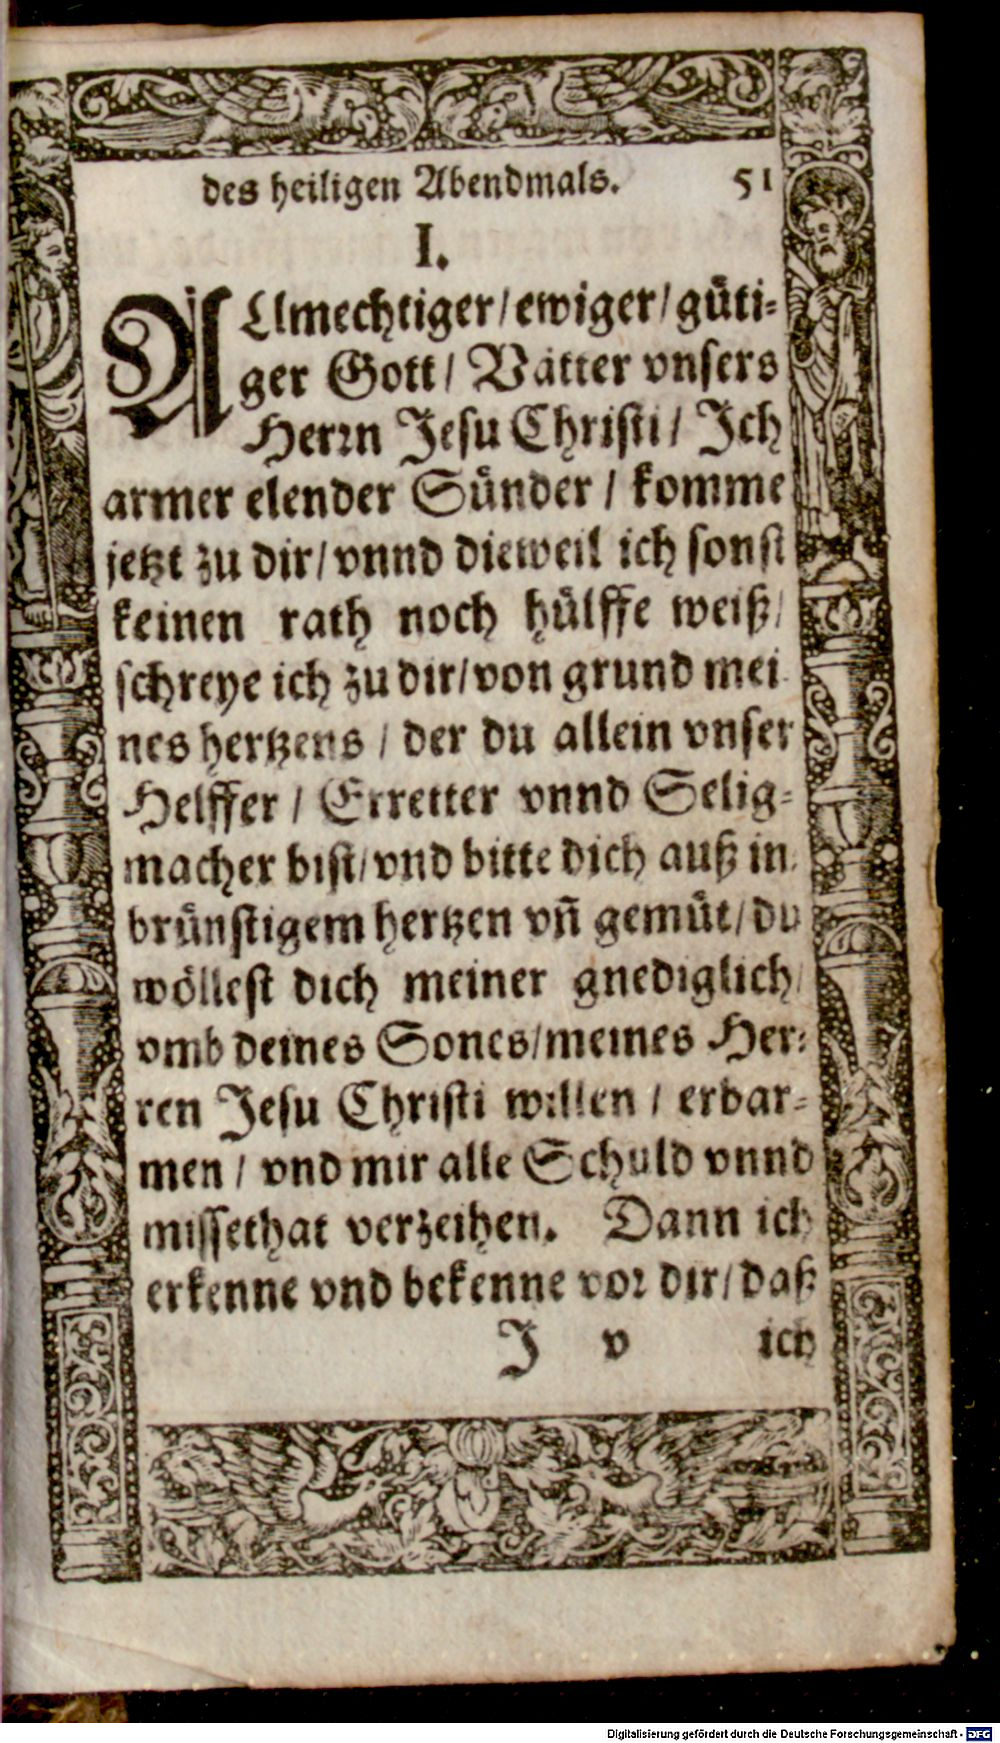 des heiligen Abendmals. 51
I.
ALlmechtiger/ ewiger/ gůti-
ger Gott/ Vatter vnsers
Herrn Jesu Christi/ Ich
armer elender Sünder/ komme
jetzt zu dir/ vnnd dieweil ich sonst
keinen rath noch hülffe weiß/
schreye ich zu dir/ von grund mei-
nes hertzens/ der du allein vnser
Helffer/ Erretter vnnd Selig-
macher bist/ vnd bitte dich auß in-
brünstigem hertzen vn̄ gemůt/ du
wöllest dich meiner gnediglich/
vmb deines Sones/ meines Her-
ren Jesu Christi willen/ erbar-
men/ vnd mir alle Schuld vnnd
missethat verzeihen. Dann ich
erkenne vnd bekenne vor dir/ daß
J v ich
Digitalisierung gefördert durch die Deutsche Forschungsgemeinschaft - DFG